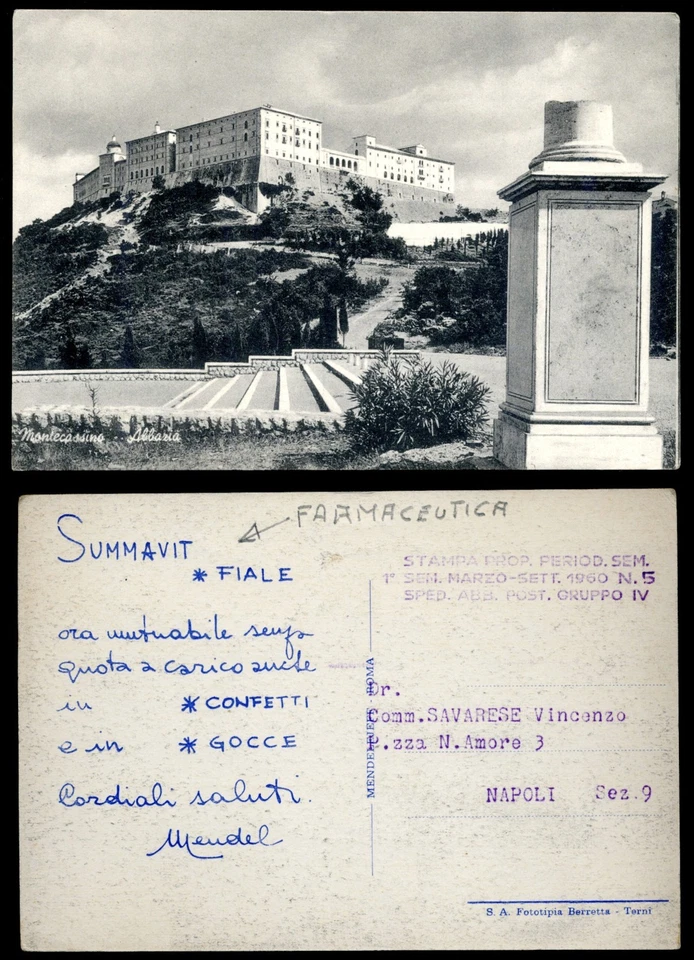 Montecassino - Abbazia
FARMACEUTICA
SUMMAVIT
* FIALE
ora mutuabile senza
quota a carico anche
in * CONFETTI
e in * GOCCE
Cordiali saluti.
Mendel
STAMPA PROP. PERIOD. SEM.
1° SEM. MARZO-SETT. 1960 N. 5
SPED. ABB. POST. GRUPPO IV
ROMA
Dr.
Comm.SAVARESE Vincenzo
P.zza N.Amore 3
NAPOLI Sez.9
S. A. Fototipia Berretta - Terni